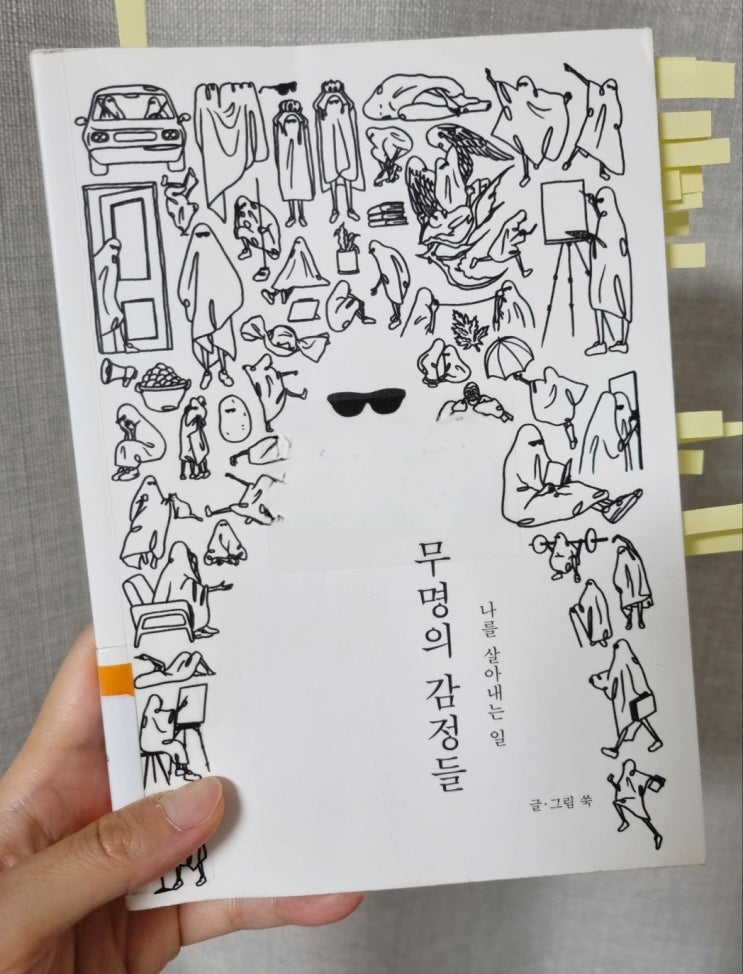 무명의 감정들
나를 살아내는 일
글·그림 쑥